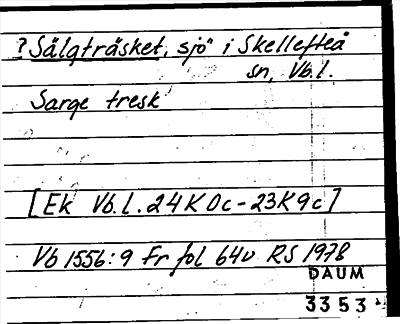 ? Sälgträsket, sjö i Skellefteå
sn, Vb.l.
Sarge tresk
[Ek Vb.l. 24K 0c-23K9c]
Vb 1556:9 Fr fol 64v RS 1978
DAUM
3353